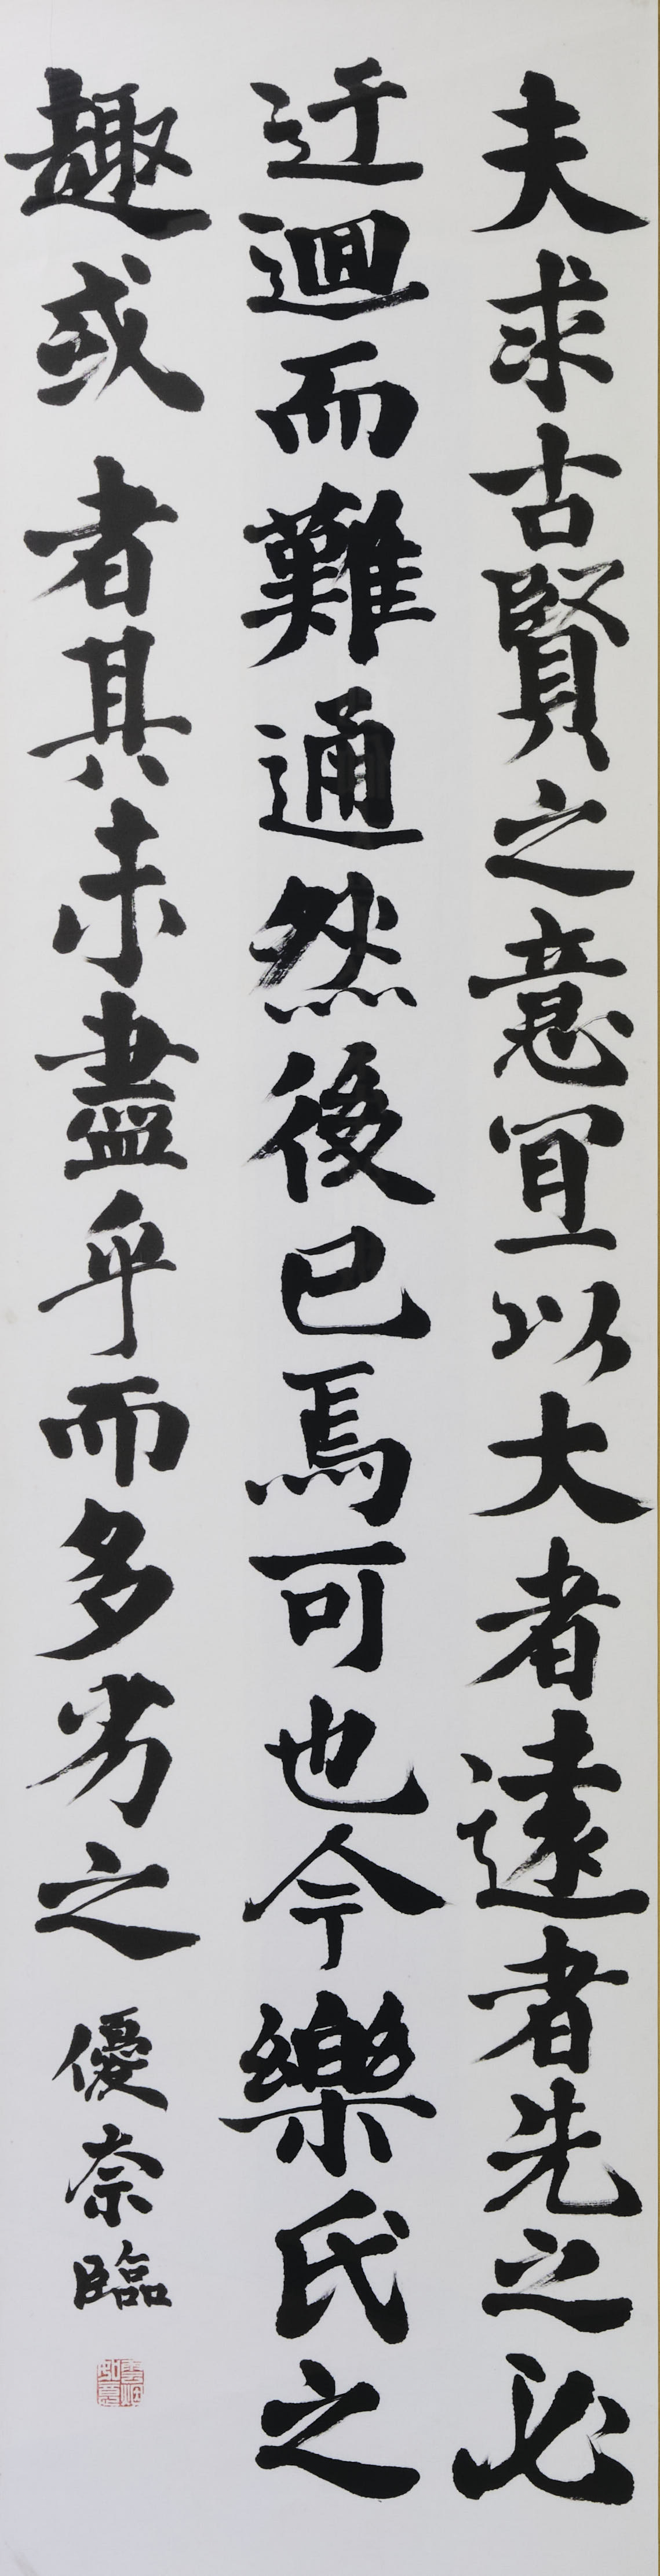 夫求古賢之意宜以大者遠者先之必
迂迴而難通然後已焉可也今樂氏之
趣或者其未盡乎而多劣之
優奈臨